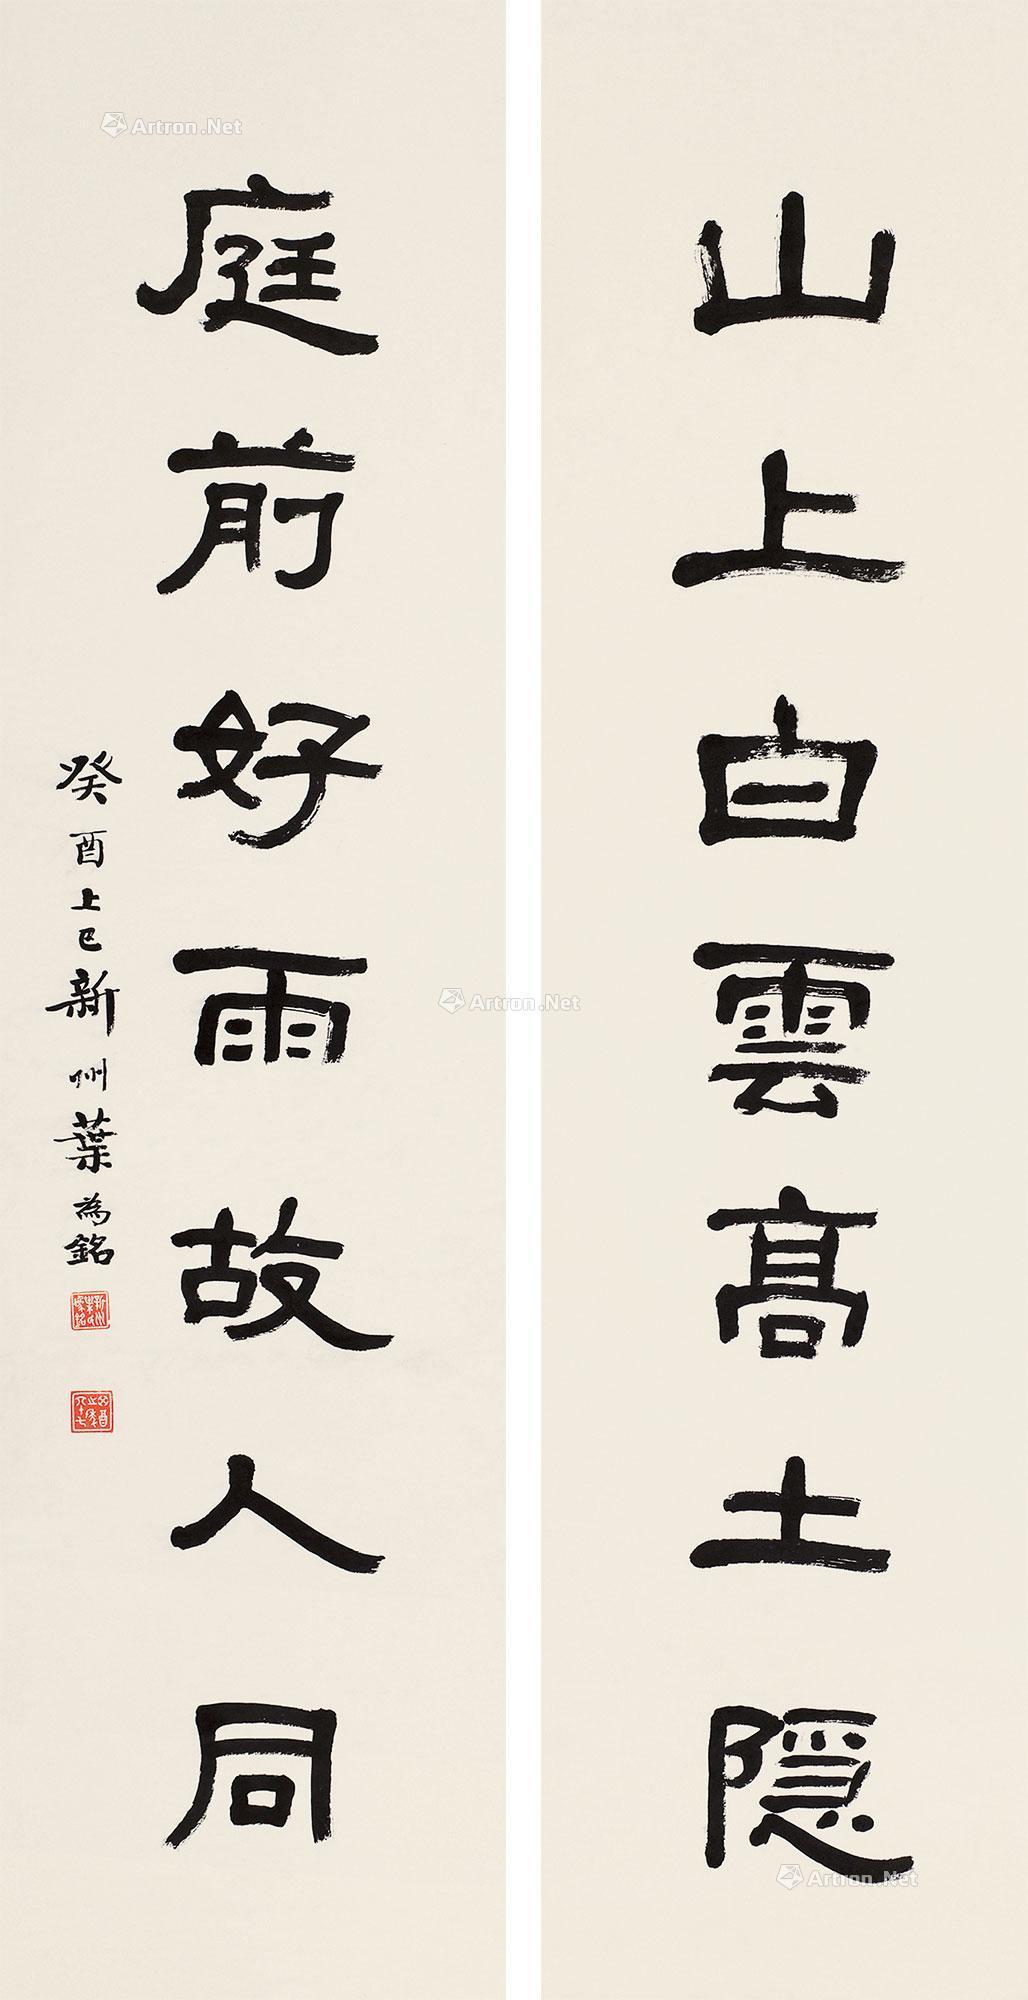 山上白雲高士隱
庭前好雨故人同
癸酉上巳新州葉為銘
Artron.Net
Artron.Net
Artron.Net